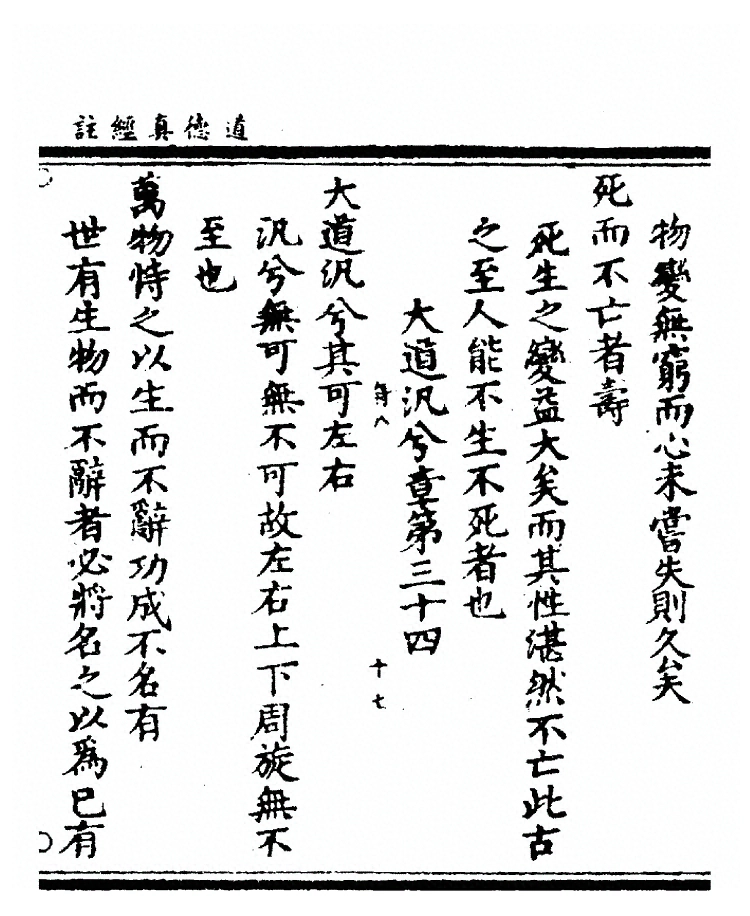 道德真經註
物變無窮而心未嘗失則久矣
死而不亡者壽
死生之變益大矣而其性湛然不亡此古
之至人能不生不死者也
大道汎兮章第三十四
每八
十七
大道汎兮其可左右
汎兮無可無不可故左右上下周旋無不
至也
萬物恃之以生而不辭功成不名有
世有生物而不辭者必將名之以爲已有